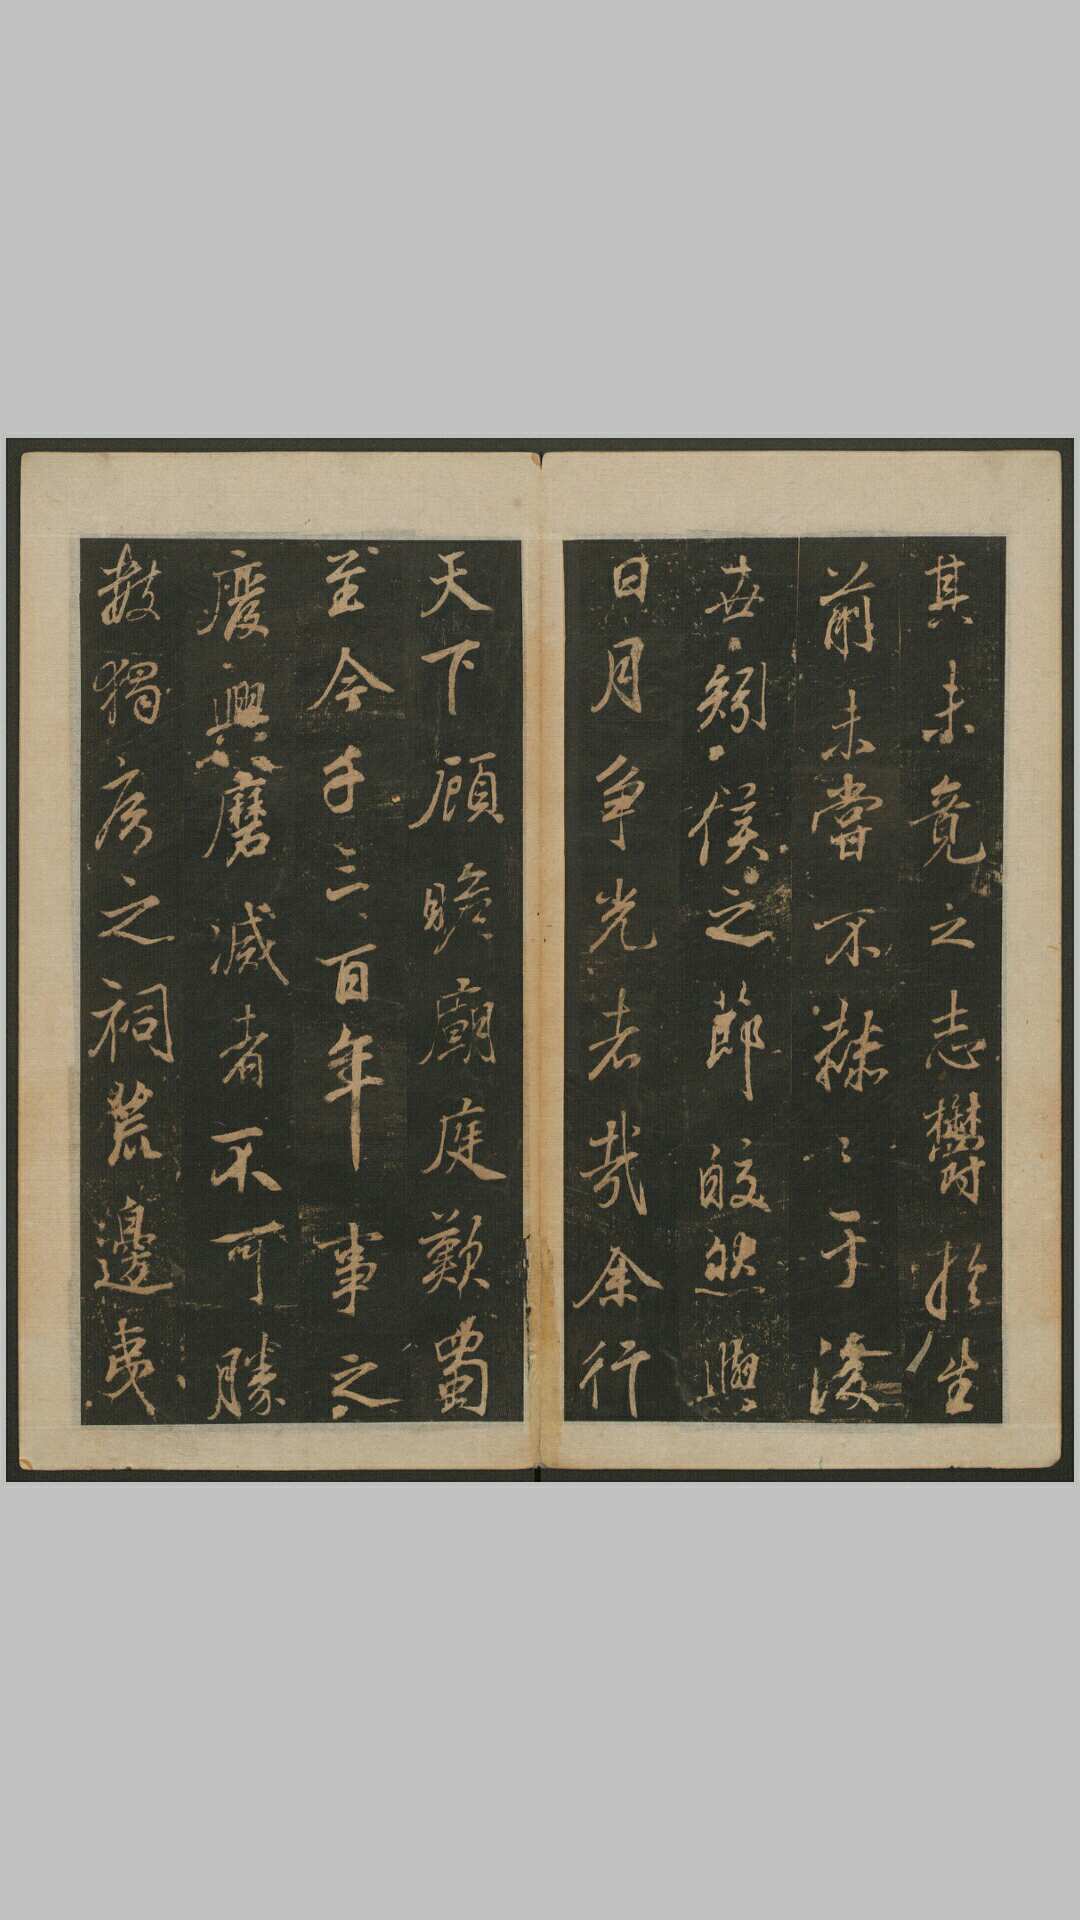 其未竟之志鬱於生
前未嘗不〻于後
世矧侯之節皎然與
日月爭光者哉余行
天下顧瞻廟庭歎蜀
至今千三百年事之
廢興磨滅者不可勝
數獨矦之祠荒邊夷